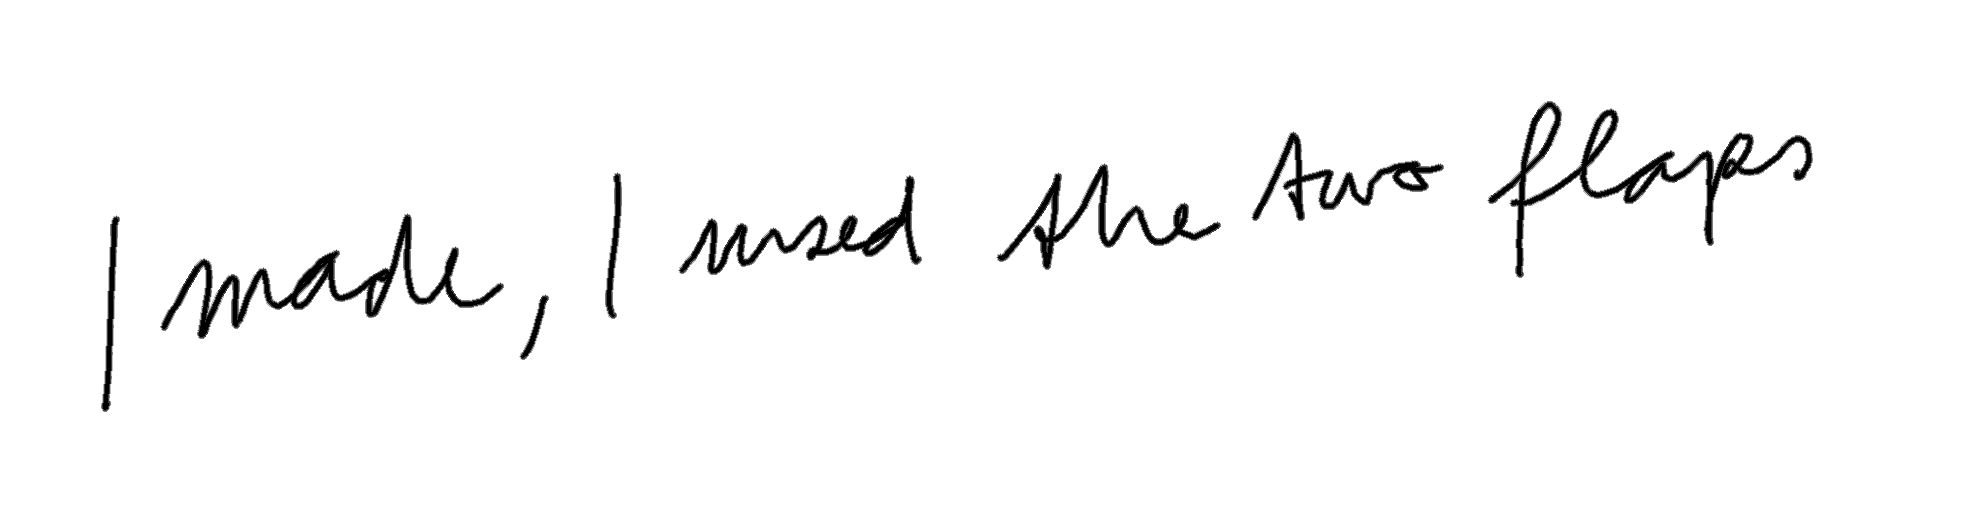 I made, I used the two flaps